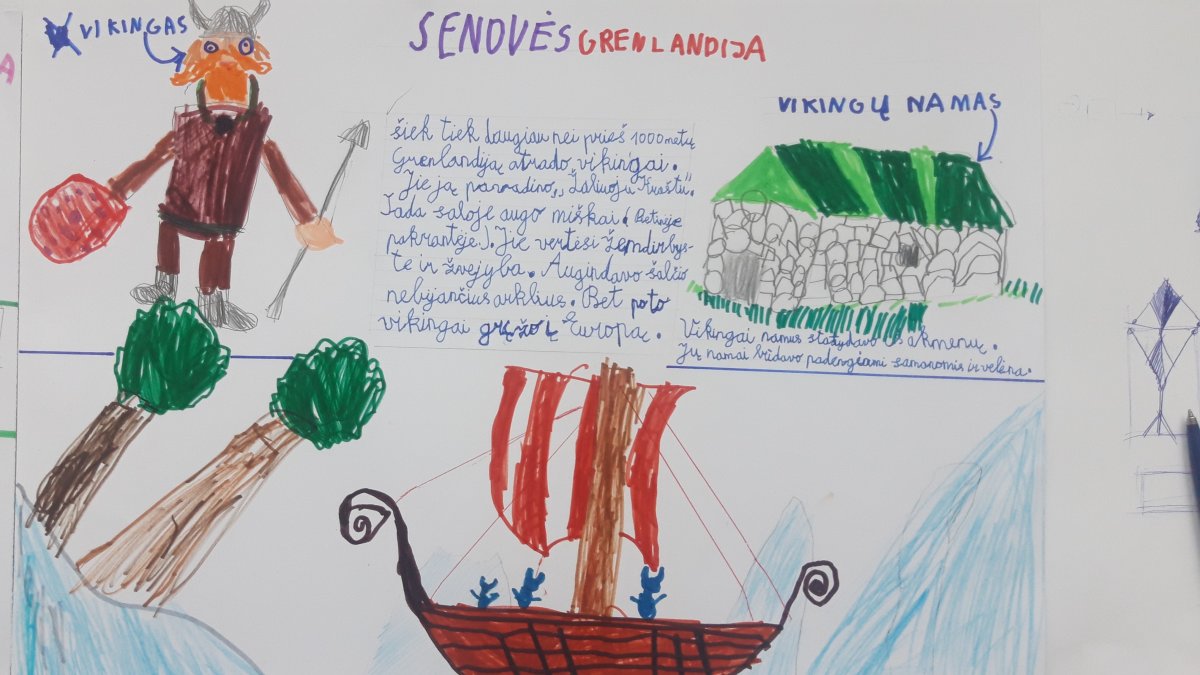 VIKINGAS
SENOVĖS GRENLANDIJA
šiek tiek daugiau nei prieš 1000 metų
Grenlandiją atrado vikingai.
Jie ją pavadino „Žaliuoju Kraštu".
Tada saloje augo miškai (Betvije
pakrantėje). Jie vertėsi žemdirbys-
te ir žvejyba. Augindavo šalčio
nebijančius arklius. Bet po to
vikingai grįžo į Europą.
VIKINGŲ NAMAS
Vikingai namus statydavo iš akmenų.
Jų namai būdavo padengiami samanomis ir velėna.